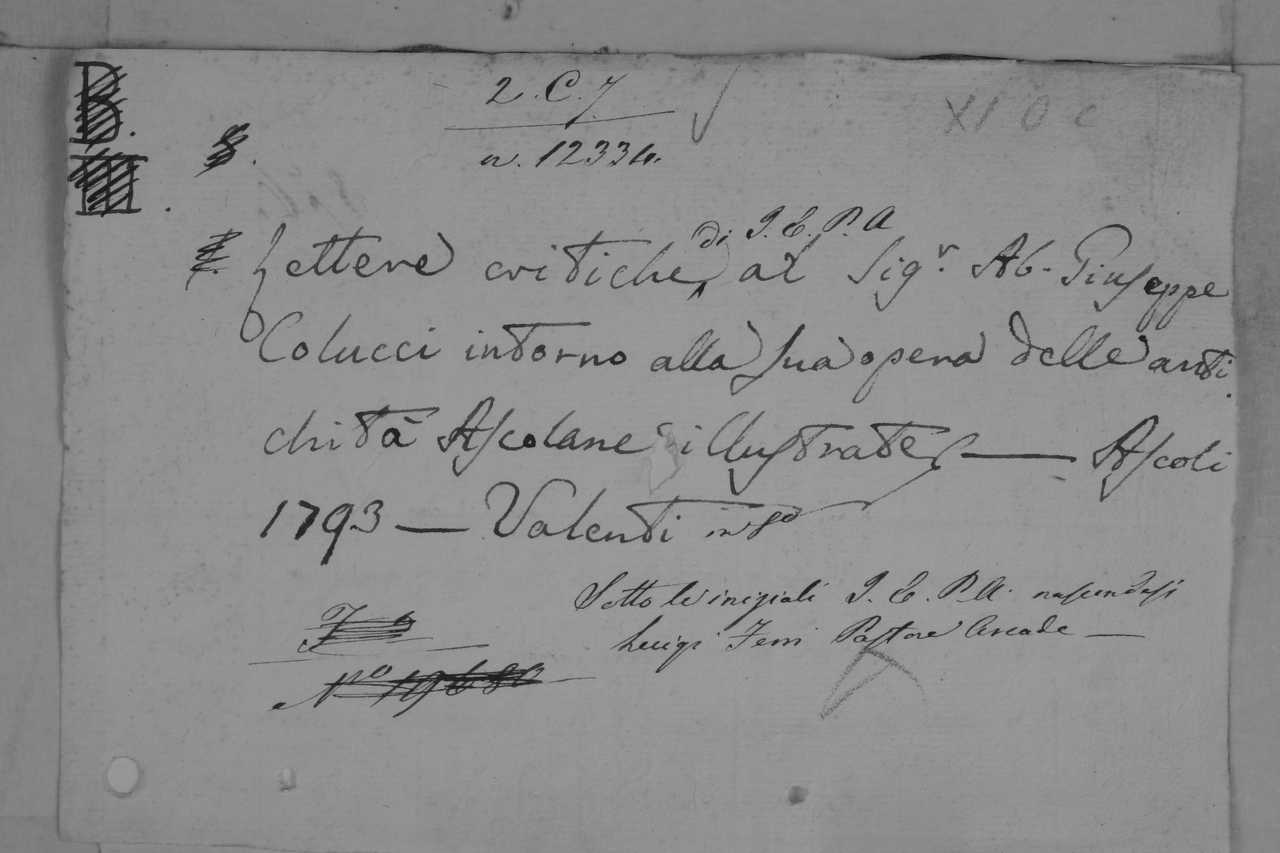 B.
III.
2.C.7
n. 12334.
XI O c
8.
di I. E. P. A
Lettere critiche al Sigr. Ab. Giuseppe
Colucci intorno alla sua opera delle anti
chità Ascolane illustrate — Ascoli
1793 — Valenti in 8º
Sotto le iniziali I. E. P. A. nascondesi
Luigi Ferri Pastore Arcade —
Nº 19680